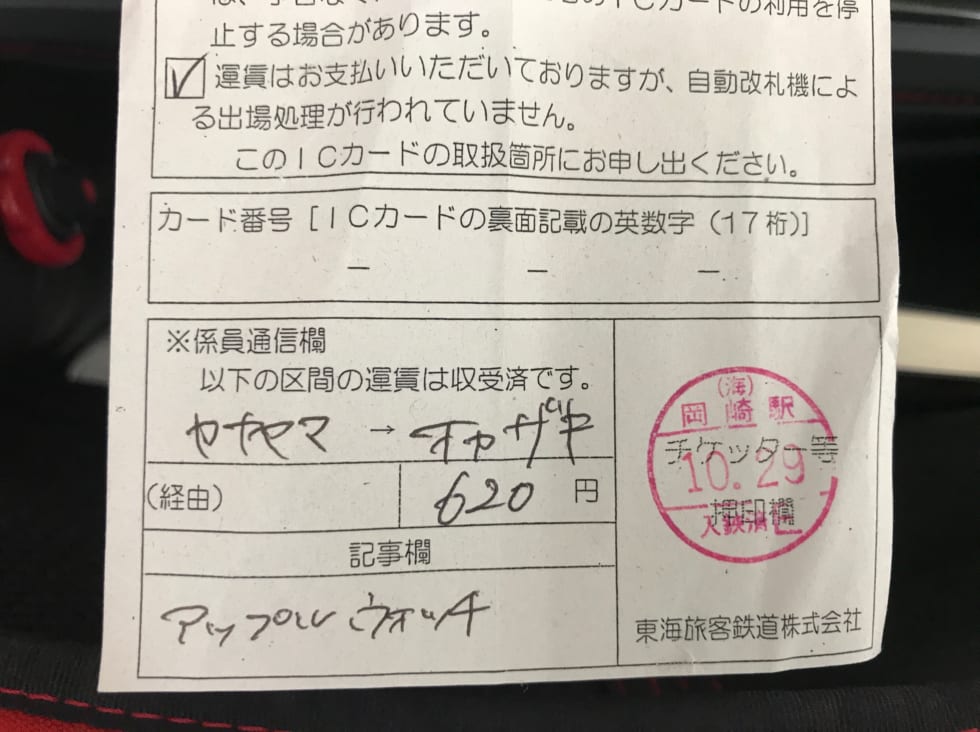 止する場合があります。
運賃はお支払いいただいておりますが、自動改札機によ
る出場処理が行われていません。
このICカードの取扱箇所にお申し出ください。
カード番号[ICカードの裏面記載の英数字(17桁)]
－ － －
※係員通信欄
以下の区間の運賃は収受済です。
ヤナヤマ → オカザキ
(経由) 620 円
記事欄
アップルウォッチ
(海)
岡崎駅
チケッター等
10.29
押印欄
東海旅客鉄道株式会社